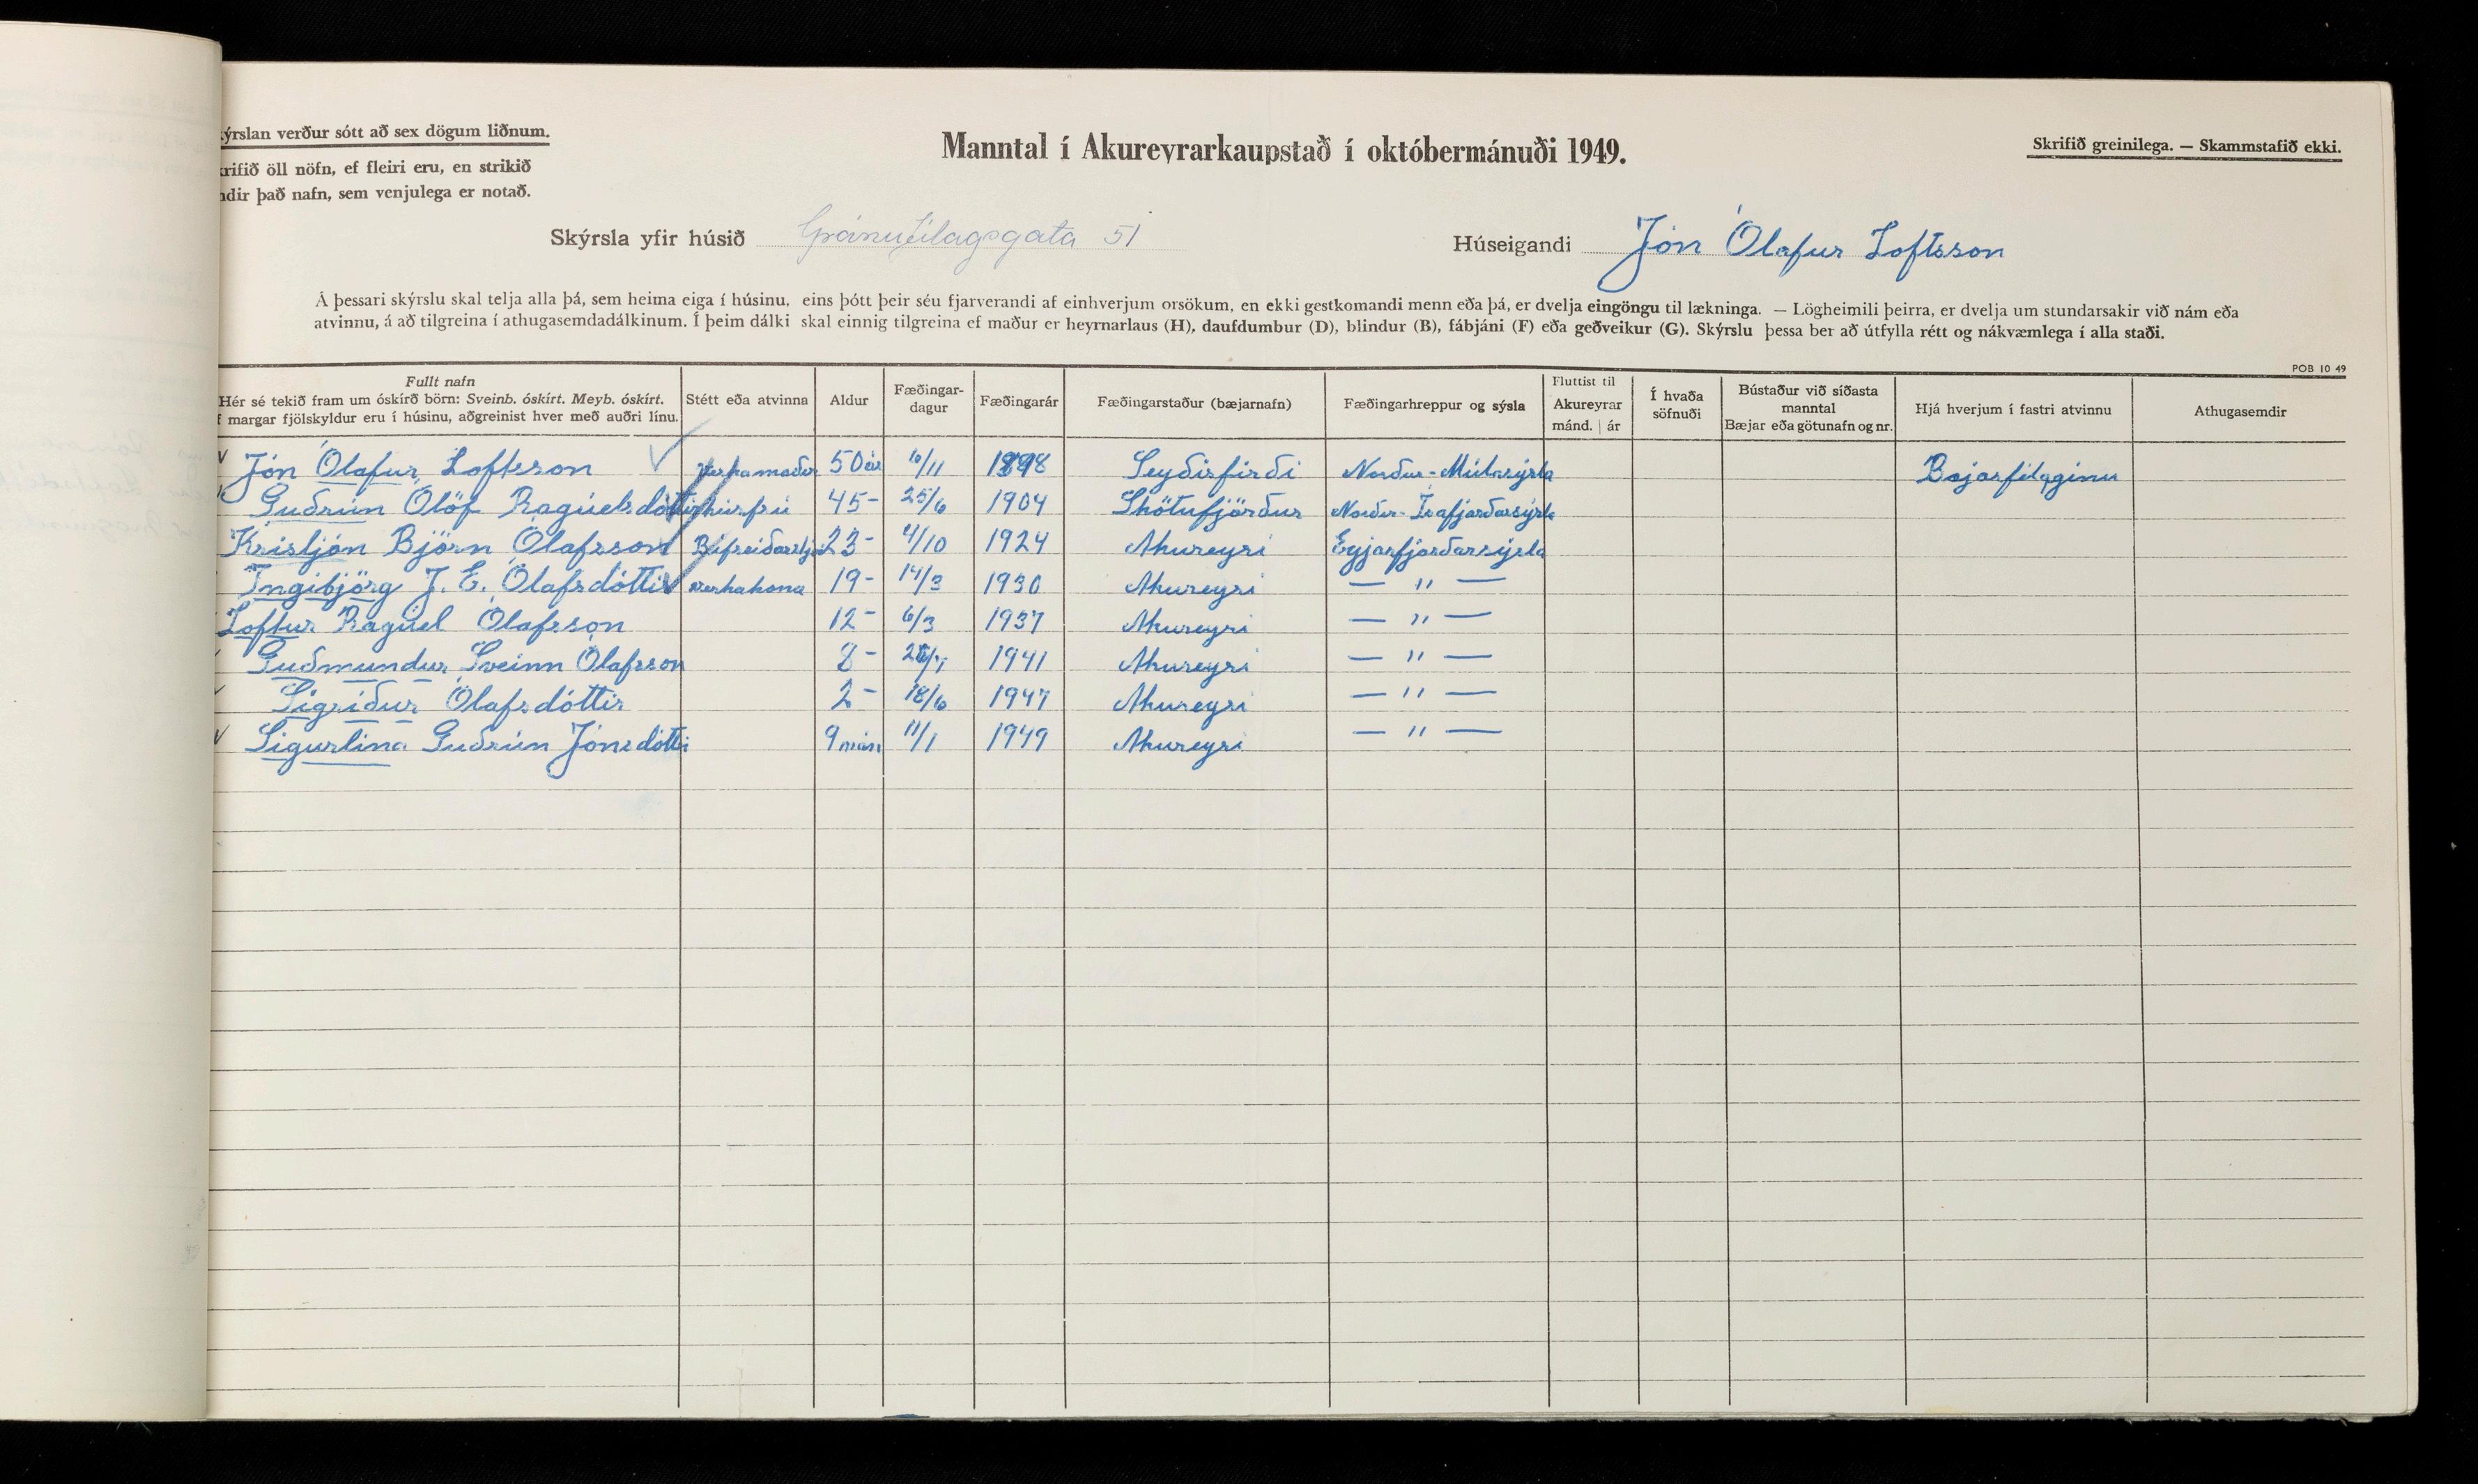 ýrslan verður sótt að sex dögum liðnum.
krifið öll nöfn, ef fleiri eru, en strikið
ndir það nafn, sem venjulega er notað.
Manntal í Akureyrarkaupstað í októbermánuði 1949.
Skrifið greinilega. — Skammstafið ekki.
Skýrsla yfir húsið Gránufélagsgata 51
Húseigandi Jón Ólafur Loftsson
Á þessari skýrslu skal telja alla þá, sem heima eiga í húsinu, eins þótt þeir séu fjarverandi af einhverjum orsökum, en ekki gestkomandi menn eða þá, er dvelja eingöngu til lækninga. — Lögheimili þeirra, er dvelja um stundarsakir við nám eða
atvinnu, á að tilgreina í athugasemdadálkinum. Í þeim dálki skal einnig tilgreina ef maður er heyrnarlaus (H), daufdumbur (D), blindur (B), fábjáni (F) eða geðveikur (G). Skýrslu þessa ber að útfylla rétt og nákvæmlega í alla staði.
POB 10 49
Fullt nafn
Hér sé tekið fram um óskírð börn: Sveinb. óskírt. Meyb. óskírt.
f margar fjölskyldur eru í húsinu, aðgreinist hver með auðri línu.
Stétt eða atvinna
Aldur
Fæðingar-
dagur
Fæðingarár
Fæðingarstaður (bæjarnafn)
Fæðingarhreppur og sýsla
Fluttist til
Akureyrar
mánd. | ár
Í hvaða
söfnuði
Bústaður við síðasta
manntal
Bæjar eða götunafn og nr.
Hjá hverjum í fastri atvinnu
Athugasemdir
Jón Ólafur Loftsson verkamaður 50 ár 1898 Seyðisfirði Norður-Múlasýsla Bæjarfélaginu
Guðrún Ólöf Ragúelsdóttir húsfrú 45- 25/6 1904 Skötufjörður Norður-Ísafjarðarsýsla
Kristjón Björn Ólafsson 23- 4/10 1924 Akureyri Eyjarfjarðarsýsla
Ingibjörg J. E. Ólafsdóttir verkakona 19- 14/3 1930 Akureyri — " —
Loftur Ragúel Ólafsson 12- 6/3 1937 Akureyri — " —
Guðmundur Sveinn Ólafsson 8- 1941 Akureyri — " —
Sigríður Ólafsdóttir 2- 18/6 1947 Akureyri — " —
Sigurlína Guðrún Jónsdótti 9 mán 11/1 1949 Akureyri — " —